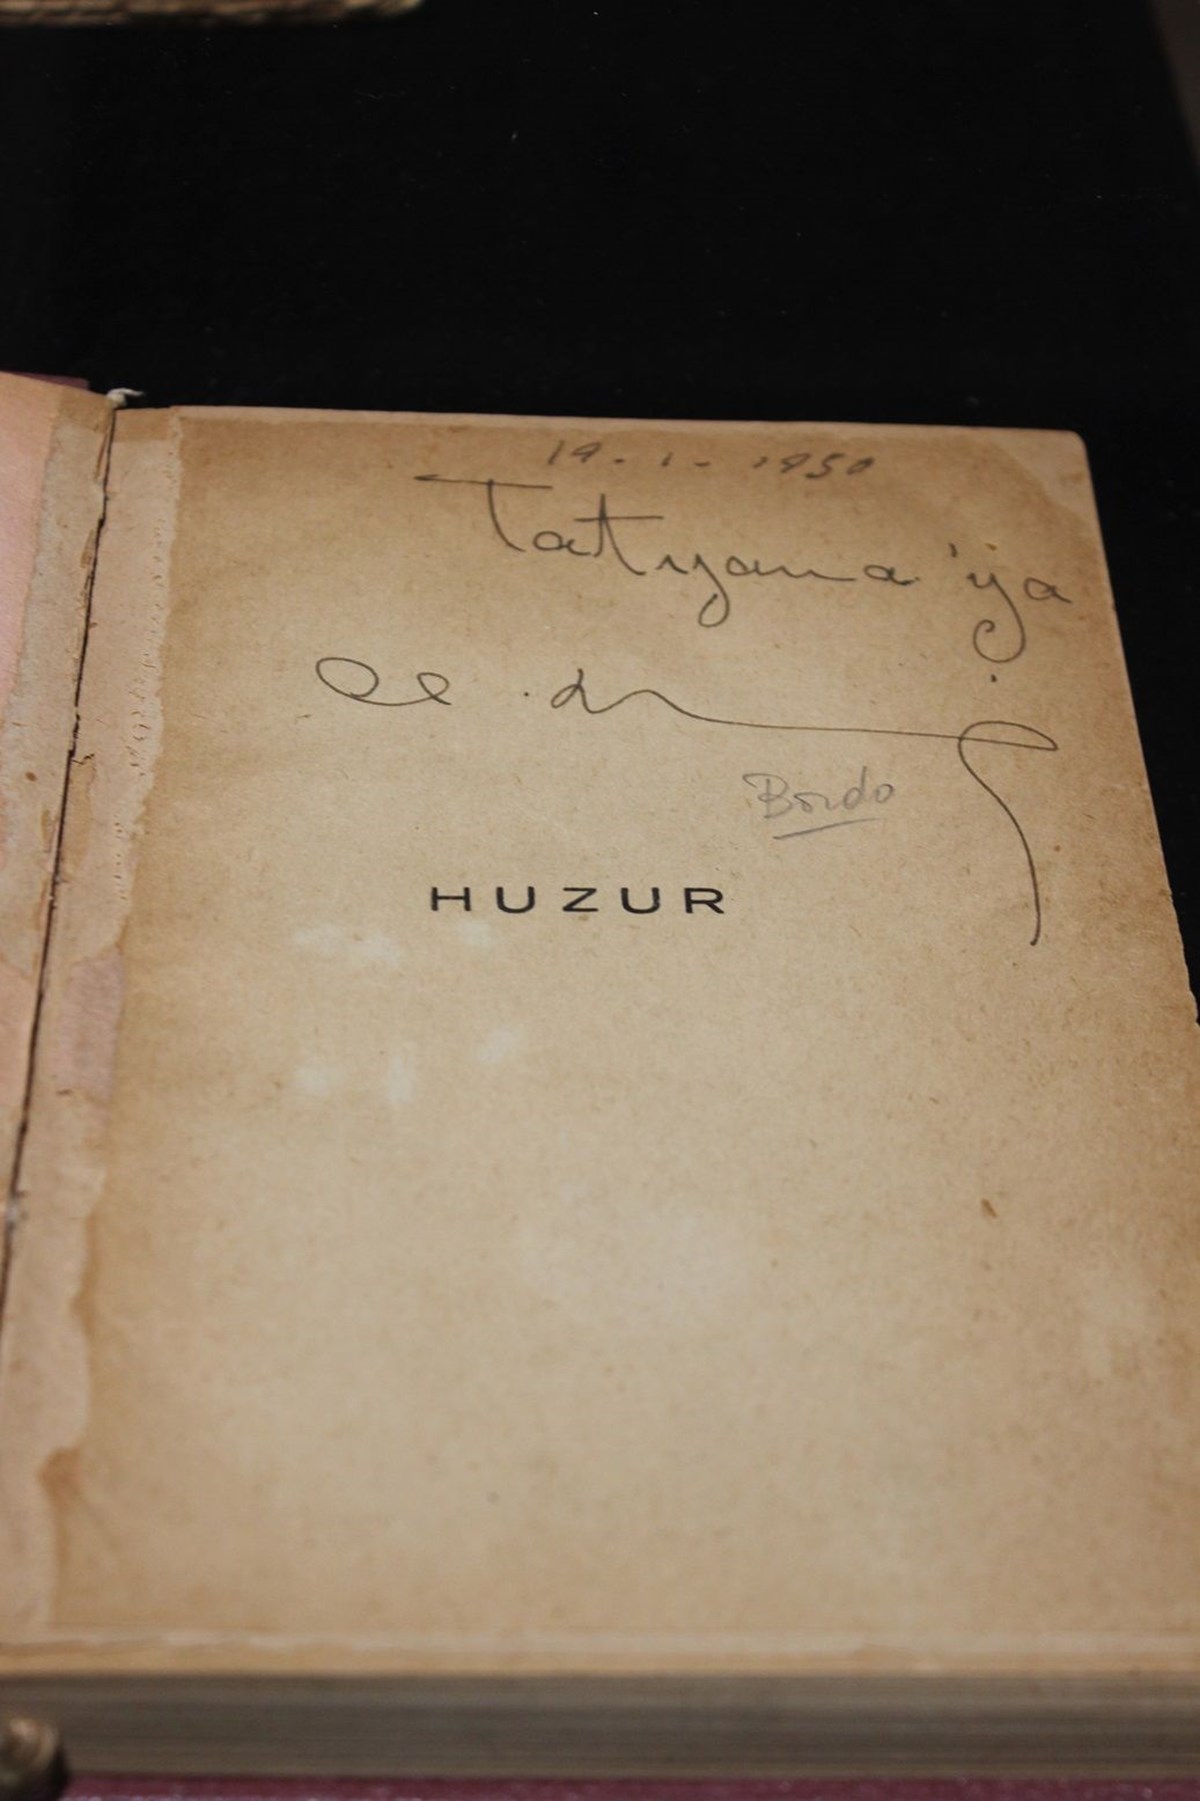 19.1.1950
Tatyana'ya
Bordo
HUZUR